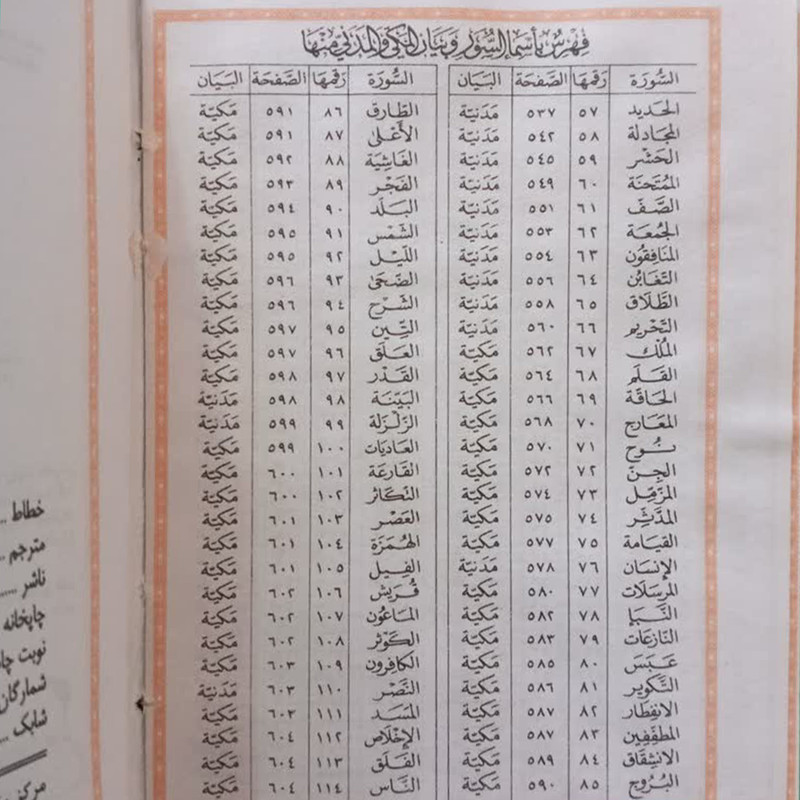 فِهْرِسٌ بِأَسْمَاءِ السُّوَرِ وَبَيَانِ المَكِّيِّ وَالمَدَنِيِّ مِنْهَا
السُّورَة رَقمُهَا الصَّفحَة البَيَان السُّورَة رَقمُهَا الصَّفحَة البَيَان
الحَديد ٥٧ ٥٣٧ مَدَنيّة الطَّارق ٨٦ ٥٩١ مَكيّة
المجَادلة ٥٨ ٥٤٢ مَدَنيّة الأَعْلى ٨٧ ٥٩١ مَكيّة
الحَشْر ٥٩ ٥٤٥ مَدَنيّة الغَاشِيَة ٨٨ ٥٩٢ مَكيّة
المُمتَحنَة ٦٠ ٥٤٩ مَدَنيّة الفَجْر ٨٩ ٥٩٣ مَكيّة
الصَّفّ ٦١ ٥٥١ مَدَنيّة البَلَد ٩٠ ٥٩٤ مَكيّة
الجُمُعَة ٦٢ ٥٥٣ مَدَنيّة الشَّمْس ٩١ ٥٩٥ مَكيّة
المنَافِقون ٦٣ ٥٥٤ مَدَنيّة اللّيْل ٩٢ ٥٩٥ مَكيّة
التغَابُن ٦٤ ٥٥٦ مَدَنيّة الضّحَىٰ ٩٣ ٥٩٦ مَكيّة
الطَّلَاق ٦٥ ٥٥٨ مَدَنيّة الشَّرْح ٩٤ ٥٩٦ مَكيّة
التّحْريم ٦٦ ٥٦٠ مَدَنيّة التِّين ٩٥ ٥٩٧ مَكيّة
المُلْك ٦٧ ٥٦٢ مَكيّة العَلَق ٩٦ ٥٩٧ مَكيّة
القَلَم ٦٨ ٥٦٤ مَكيّة القَدْر ٩٧ ٥٩٨ مَكيّة
الحَاقّة ٦٩ ٥٦٦ مَكيّة البَيّنَة ٩٨ ٥٩٨ مَدَنيّة
المعَارج ٧٠ ٥٦٨ مَكيّة الزّلزَلة ٩٩ ٥٩٩ مَدَنيّة
نُوح ٧١ ٥٧٠ مَكيّة العَاديَات ١٠٠ ٥٩٩ مَكيّة
الجِنّ ٧٢ ٥٧٢ مَكيّة القَارعَة ١٠١ ٦٠٠ مَكيّة
المُزّمِّل ٧٣ ٥٧٤ مَكيّة التّكاثُر ١٠٢ ٦٠٠ مَكيّة
المدَّثّر ٧٤ ٥٧٥ مَكيّة العَصْر ١٠٣ ٦٠١ مَكيّة
القِيَامَة ٧٥ ٥٧٧ مَكيّة الهُمَزة ١٠٤ ٦٠١ مَكيّة
الإنسَان ٧٦ ٥٧٨ مَدَنيّة الفِيل ١٠٥ ٦٠١ مَكيّة
المرسَلَات ٧٧ ٥٨٠ مَكيّة قُرَيش ١٠٦ ٦٠٢ مَكيّة
النّبَإ ٧٨ ٥٨٢ مَكيّة المَاعُون ١٠٧ ٦٠٢ مَكيّة
النّازعَات ٧٩ ٥٨٣ مَكيّة الكَوثَر ١٠٨ ٦٠٢ مَكيّة
عَبَسَ ٨٠ ٥٨٥ مَكيّة الكافِرون ١٠٩ ٦٠٣ مَكيّة
التّكوير ٨١ ٥٨٦ مَكيّة النّصْر ١١٠ ٦٠٣ مَدَنيّة
الانفِطار ٨٢ ٥٨٧ مَكيّة المَسَد ١١١ ٦٠٣ مَكيّة
المطفّفِين ٨٣ ٥٨٧ مَكيّة الإخْلَاص ١١٢ ٦٠٤ مَكيّة
الانشِقَاق ٨٤ ٥٨٩ مَكيّة الفَلَق ١١٣ ٦٠٤ مَكيّة
البُرُوج ٨٥ ٥٩٠ مَكيّة النّاس ١١٤ ٦٠٤ مَكيّة
خطاط ..
مترجم ..
ناشر ......
چاپخانه
نوبت
شابک ...
مرکز